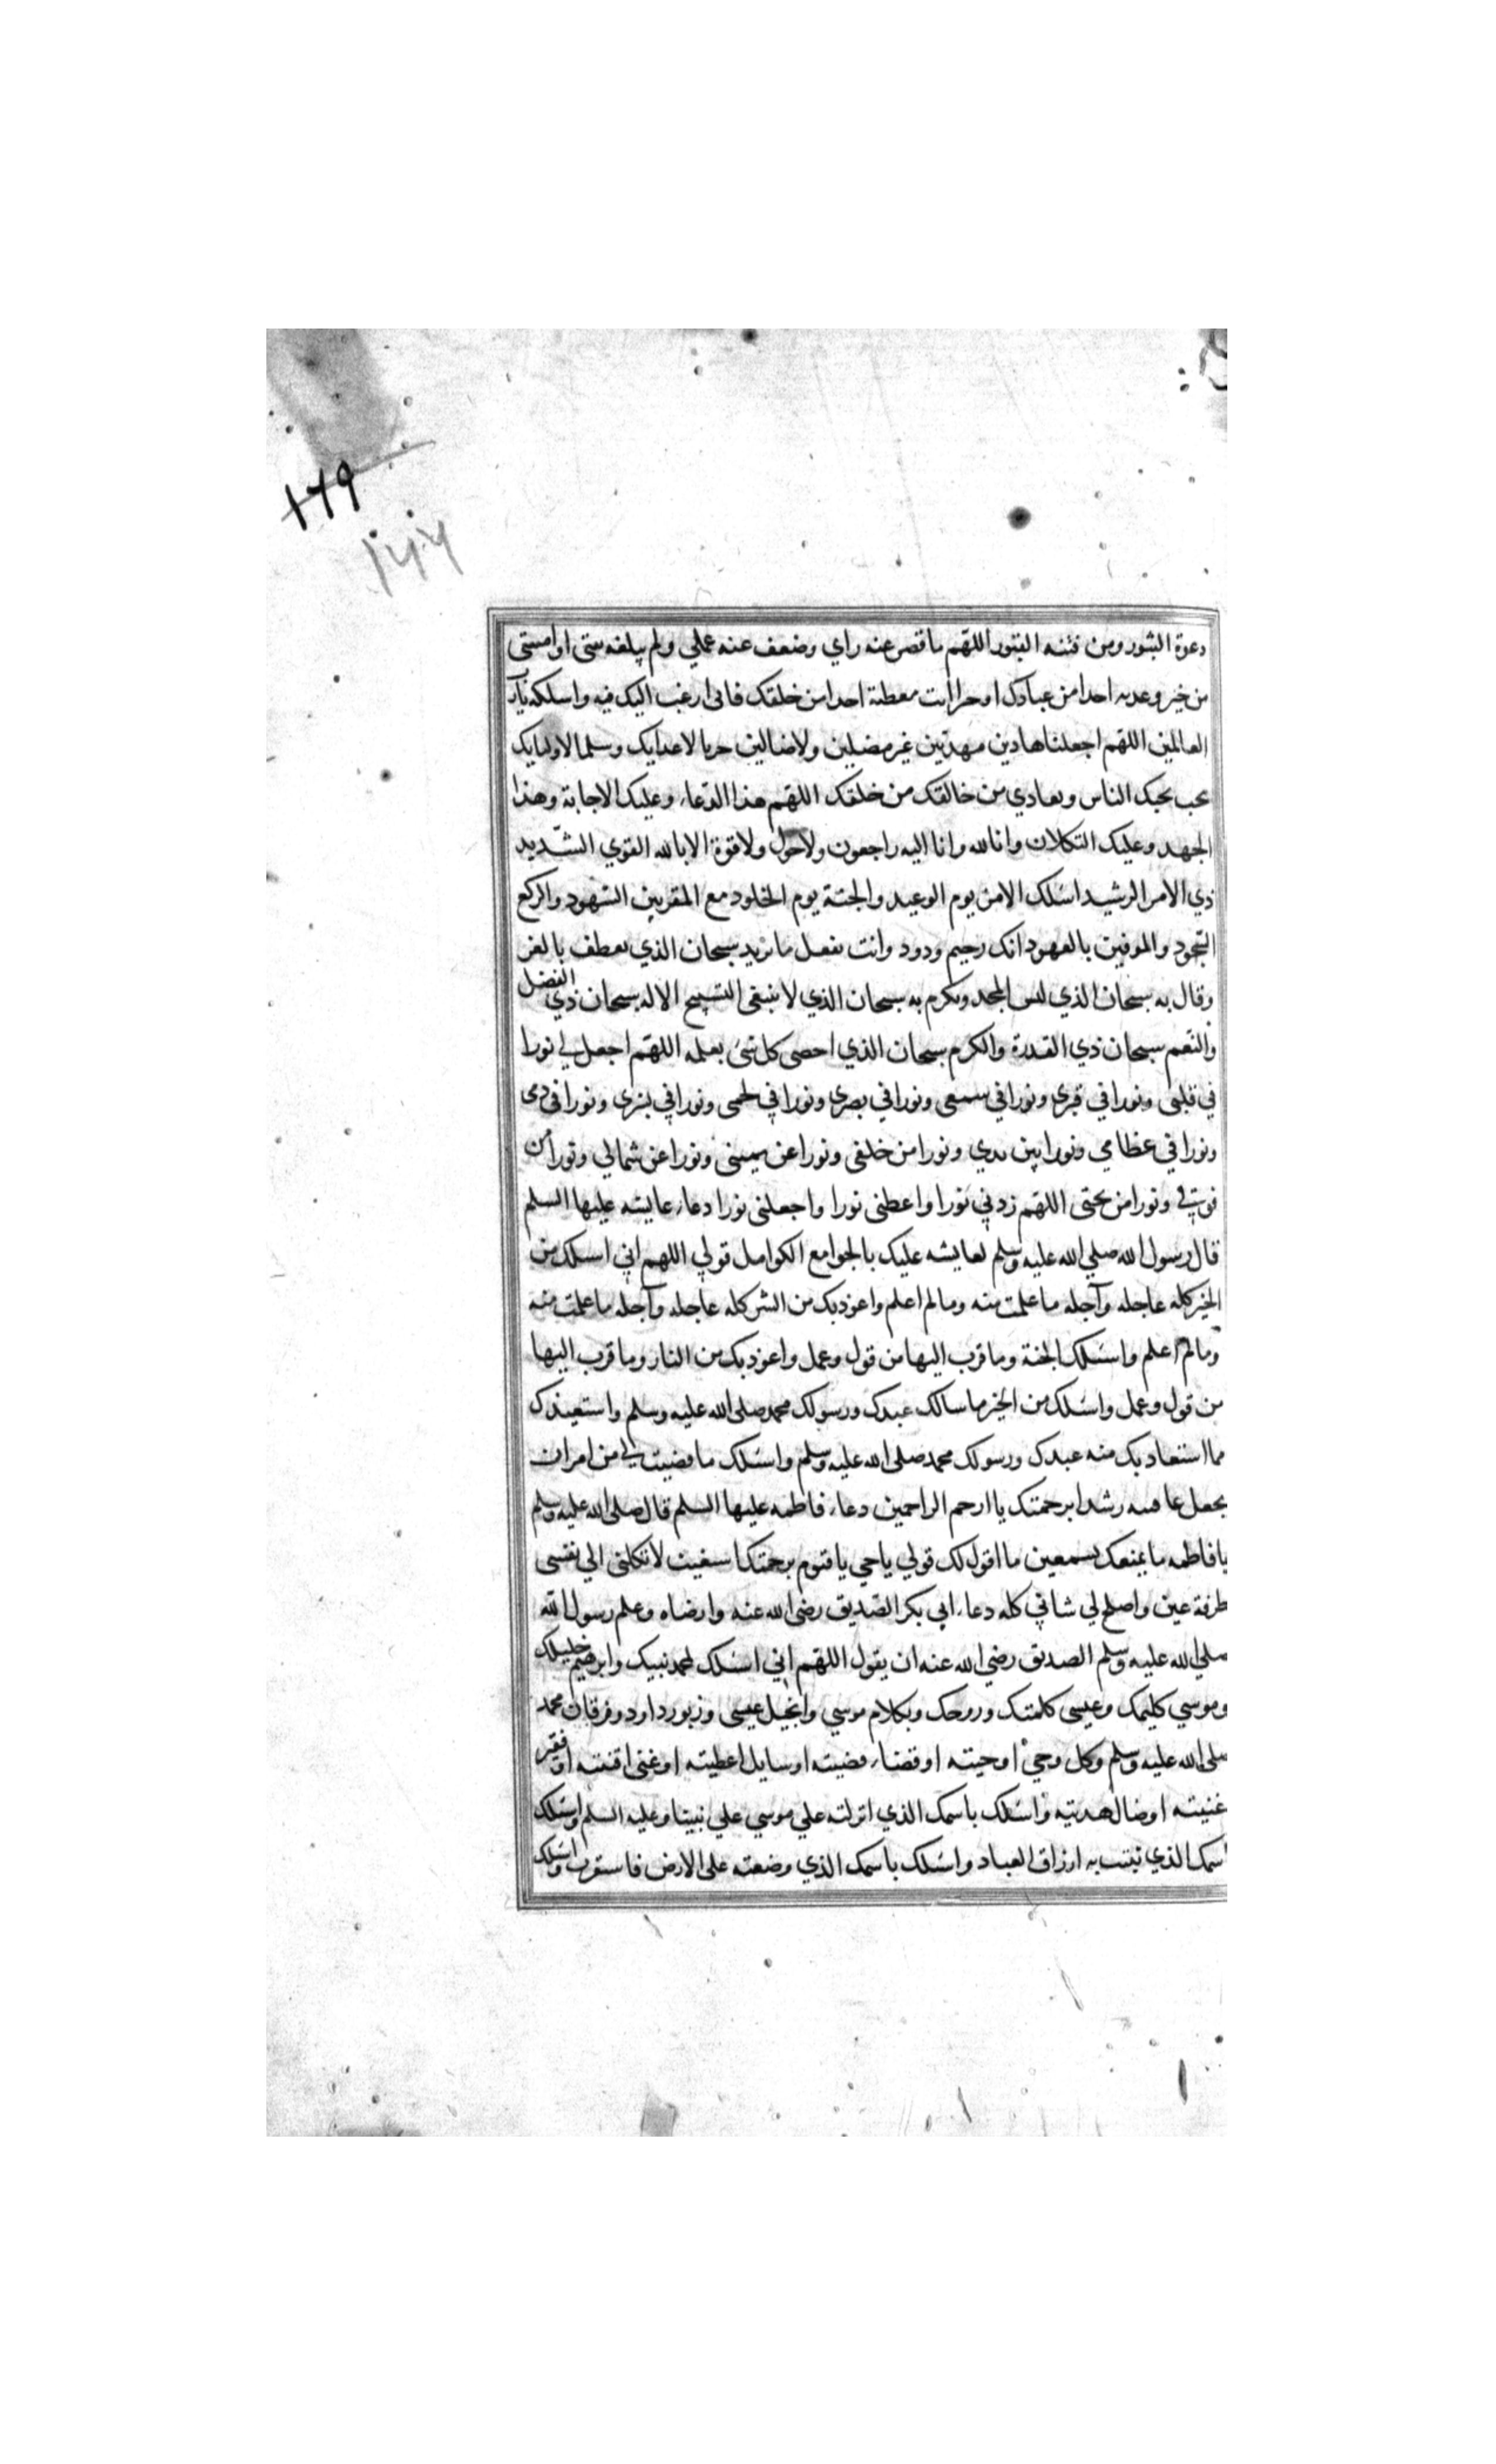 ۱۶۹
۱۷۷
دعوة الثبور ومن فتنه القبور اللهّم ما قصر عنه راي وضعف عنه عملي ولم يبلغه نيتى او امنيتى
من خير وعدته احدا من عبادك او خيرا انت معطية احدا من خلقك فانى ارغب اليك فيه واسلكه يارب
العالمين اللهّم اجعلنا هادين مهديّين غير مضلين ولا ضالين حربا لاعدايك وسلما لاوليايك
نحب بحبك الناس ونعادي من خالفك من خلقك اللهّم هذا الدّعاء وعليك الاجابة وهذا
الجهد وعليك التكلان وانا لله وانا اليه راجعون ولا حول ولا قوة الا بالله القوي الشّديد
ذي الامر الرشيد اسئلك الامن يوم الوعيد والجنّة يوم الخلود مع المقربين الشهود والركع
السّجود والموفين بالعهود انك رحيم ودود وانت تفعل ما تريد سبحان الذي تعطف بالعز
وقال به سبحان الذي لبس المجد وتكرم به سبحان الذي لا ينبغى التسبيح الا له سبحان ذي الفضل
والنّعم سبحان ذي القدرة والكرم سبحان الذي احصى كل شئ بعلمه اللهّم اجعل لي نورا
في قلبى ونورا في قبرى ونورا في سمعى ونورا في بصرى ونورا في لحمى ونورا في بشرى ونورا فى دمى
ونورا في عظامي ونورا بين يدي ونورا من خلفى ونورا عن يمينى ونورا عن شمالي ونورا من
فوقي ونورا من تحتى اللهّم زدني نورا واعطنى نورا واجعلنى نورا دعاء عايشه عليها السلم
قال رسول الله صلي الله عليه وسلم لعايشه عليك بالجوامع الكوامل قولي اللهم اني اسلك من
الخير كله عاجله وآجله ما علمت منه وما لم اعلم واعوذ بك من الشر كله عاجله وآجله ما علمت منه
وما لم اعلم واسئلك الجنة وما قرب اليها من قول وعمل واعوذ بك من النار وما قرب اليها
من قول وعمل واسئلك من الخير ما سالك عبدك ورسولك محمد صلى الله عليه وسلم واستعيذك
مما استعاذ بك منه عبدك ورسولك محمد صلى الله عليه وسلم واسئلك ما قضيت لي من امر ان
تجعل عاقبته رشدا برحمتك يا ارحم الراحمين دعاء فاطمه عليها السلم قال صلى الله عليه وسلم
يا فاطمه ما يمنعك تسمعين ما اقول لك قولي يا حي يا قيوم برحمتك استغيث لا تكلنى الي نفسى
طرفة عين واصلح لي شاني كله دعاء ابي بكر الصّديق رضى الله عنه وارضاه وعلم رسول الله
صلي الله عليه وسلم الصديق رضي الله عنه ان يقول اللهّم اني اسئلك لمحمد نبيك وابرهيم خليلك
وموسي كليمك وعيسى كلمتك وروحك وبكلام موسي وانجيل عيسى وزبور داود وفرقان محمد
صلى الله عليه وسلم وكل وحي اوحيته او قضاء قضيته او سايل اعطيته او غنى اقنيته او فقير
غنيته او ضال هديته واسئلك باسمك الذي انزلته علي موسي علي نبينا وعليه السلم واسئلك
اسمك الذي ثبتت به ارزاق العباد واسئلك باسمك الذي وضعته على الارض فاستقرت واسئلك